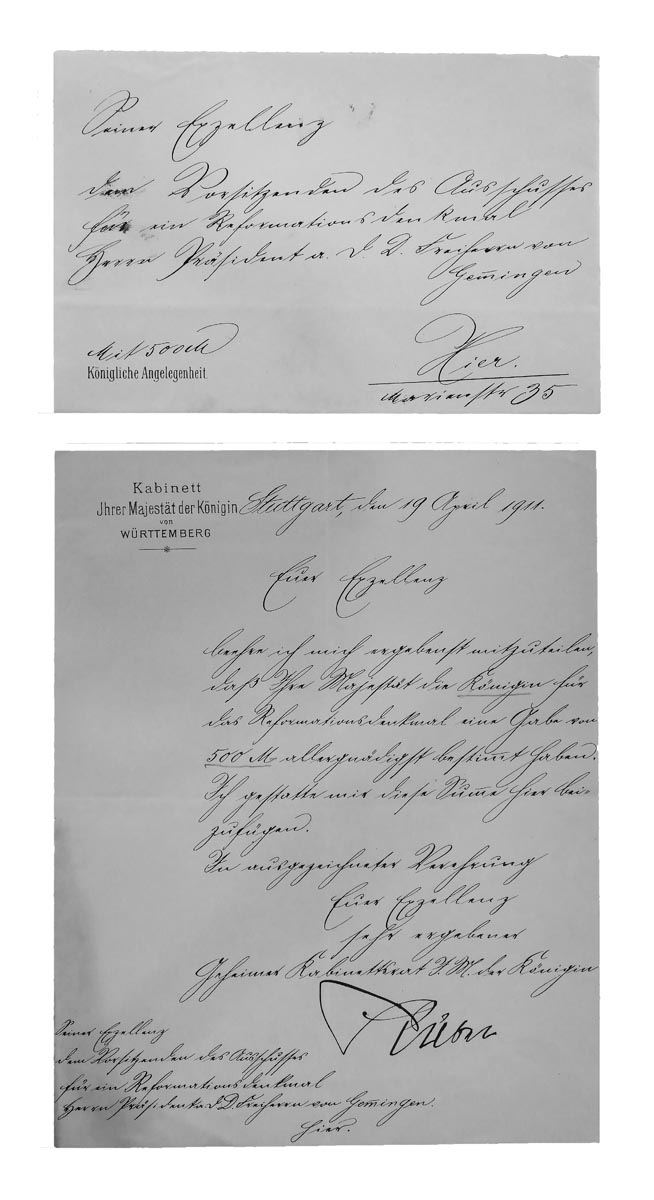 Seiner Exzellenz
dem Vorsitzenden des Ausschusses
für ein Reformationsdenkmal
Herrn Präsident a. D. D. Freiherrn von
Gem̅ingen
Mit 500 M
Königliche Angelegenheit.
Hier.
Marienstr 35
Kabinett
Jhrer Majestät der Königin
von
WÜRTTEMBERG
Stuttgart, den 19 April 1911.
Euer Exzellenz
beehre ich mich ergebenst mitzuteilen,
daß Ihre Majestät die Königin für
das Reformationsdenkmal eine Gabe von
500 M allergnädigst bestim̅t haben.
Ich gestatte mir diese Sum̅e hier bei-
zufügen.
In ausgezeichneter Verehrung
Euer Exzellenz
sehr ergebener
Geheimer Kabinettsrat I. M. der Königin
Seiner Exzellenz
dem Vorsitzenden des Ausschusses
für ein Reformationsdenkmal
Herrn Präsident a. D. D. Freiherrn von Gem̅ingen.
Hier.